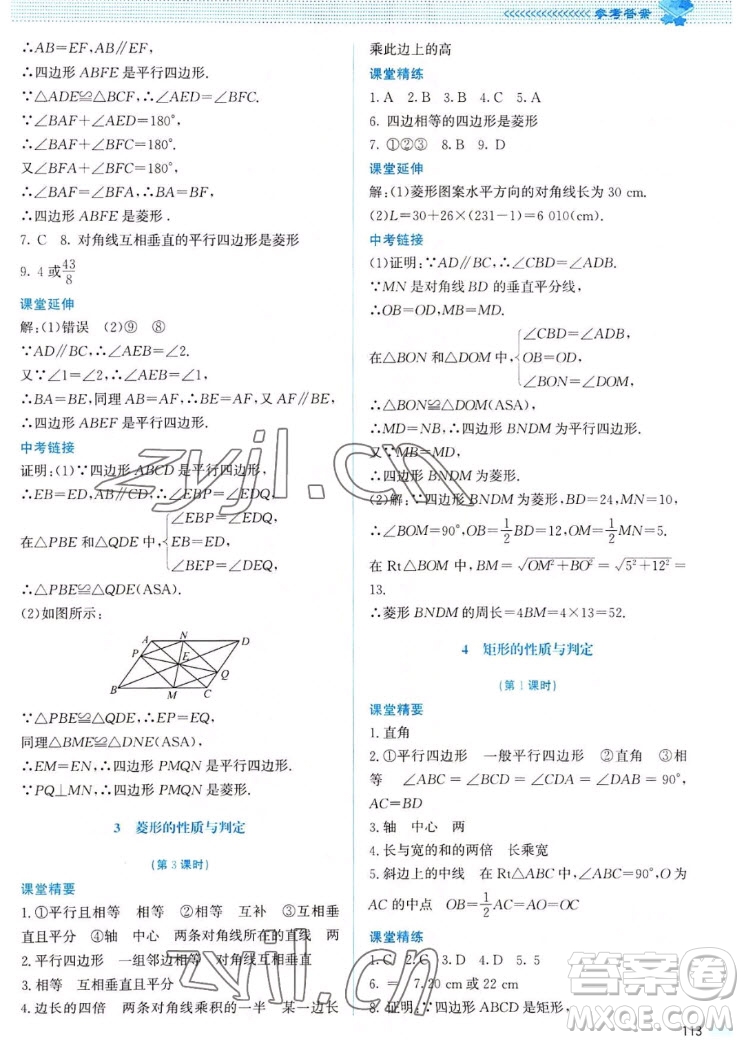 参考答案
∴AB=EF,∴AB∥EF,
∴四边形 ABFE 是平行四边形.
∵△ADE≌△BCF,∴∠AED=∠BFC.
∵∠BAF+∠AED=180°,
∴∠BAF+∠BFC=180°.
又∠BFA+∠BFC=180°,
∴∠BAF=∠BFA,∴BA=BF,
∴四边形 ABFE 是菱形.
7. C 8. 对角线互相垂直的平行四边形是菱形
9. 4 或43/8
课堂延伸
解:(1)错误 (2)⑨ ⑧
∵AD∥BC,∴∠AEB=∠2.
又∵∠1=∠2,∴∠AEB=∠1,
∴BA=BE,同理 AB=AF,∴BE=AF,又 AF∥BE,
∴四边形 ABEF 是菱形.
中考链接
证明:(1)∵四边形 ABCD 是菱形,
∴EB=ED,AB∥CD,∴∠EBP=∠EDQ,
在△PBE 和△QDE 中,{∠EBP=∠EDQ, EB=ED, ∠BEP=∠DEQ,
∴△PBE≌△QDE(ASA).
(2)如图所示:
A N D
P E
Q
B M C
∵△PBE≌△QDE,∴EP=EQ,
同理△BME≌△DNE(ASA),
∴EM=EN,∴四边形 PMQN 是平行四边形.
∵PQ⊥MN,∴四边形 PMQN 是菱形.
3 菱形的性质与判定
(第 3 课时)
课堂精要
1. ①平行且相等 相等 ②相等 互补 ③相互垂
直且平分 ④轴 中心 两条对角线所在的直线 两
2. 平行四边形 一组邻边相等 互相垂直
3. 相等 互相垂直且平分
4. 边长的四倍 两条对角线乘积的一半 某一边长
乘此边上的高
课堂精练
1. A 2. B 3. B 4. C 5. A
6. 四边相等的四边形是菱形
7. ①②③ 8. B 9. D
课堂延伸
解:(1)菱形图案水平方向的对角线长为 30 cm.
(2)L=30+26×(231-1)=6 010(cm).
中考链接
(1)证明:∵AD∥BC,∴∠CBD=∠ADB.
∵MN 是对角线 BD 的垂直平分线,
∴OB=OD,MB=MD.
在△BON 和△DOM 中,{∠CBD=∠ADB, OB=OD, ∠BON=∠DOM,
∴△BON≌△DOM(ASA),
∴MD=NB,∴四边形 BNDM 为平行四边形.
又∵MB=MD,
∴四边形 BNDM 为菱形.
(2)解:∵四边形 BNDM 为菱形,BD=24,MN=10,
∴∠BOM=90°,OB=1/2BD=12,OM=1/2MN=5.
在 Rt△BOM 中,BM=√(OM²+BO²)=√(5²+12²)=
13.
∴菱形 BNDM 的周长=4BM=4×13=52.
4 矩形的性质与判定
(第 1 课时)
课堂精要
1. 直角
2. ①平行四边形 一般平行四边形 ②直角 ③相
等 ∠ABC=∠BCD=∠CDA=∠DAB=90°,
AC=BD
3. 轴 中心 两
4. 长与宽的和的两倍 长乘宽
5. 斜边上的中线 在 Rt△ABC 中,∠ABC=90°,O 为
AC 的中点 OB=1/2AC
课堂精练
1. C 2. C 3. D 4. D 5. 5
6. = 7. 20 cm 或 22 cm
8. 证明:∵四边形 ABCD 是矩形,
113
zyjl.cn
zyjl.cn
答案圈
MXQE.COM